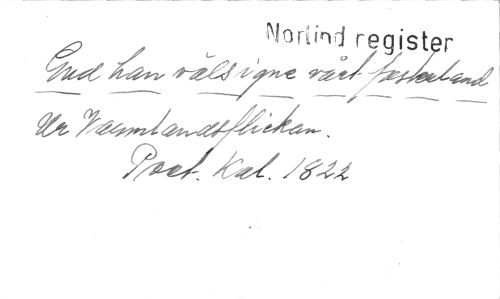 Norlind register
Gud han välsigne vårt fästeband
Ur Värmlandsflickan.
Poet. Kal. 1822